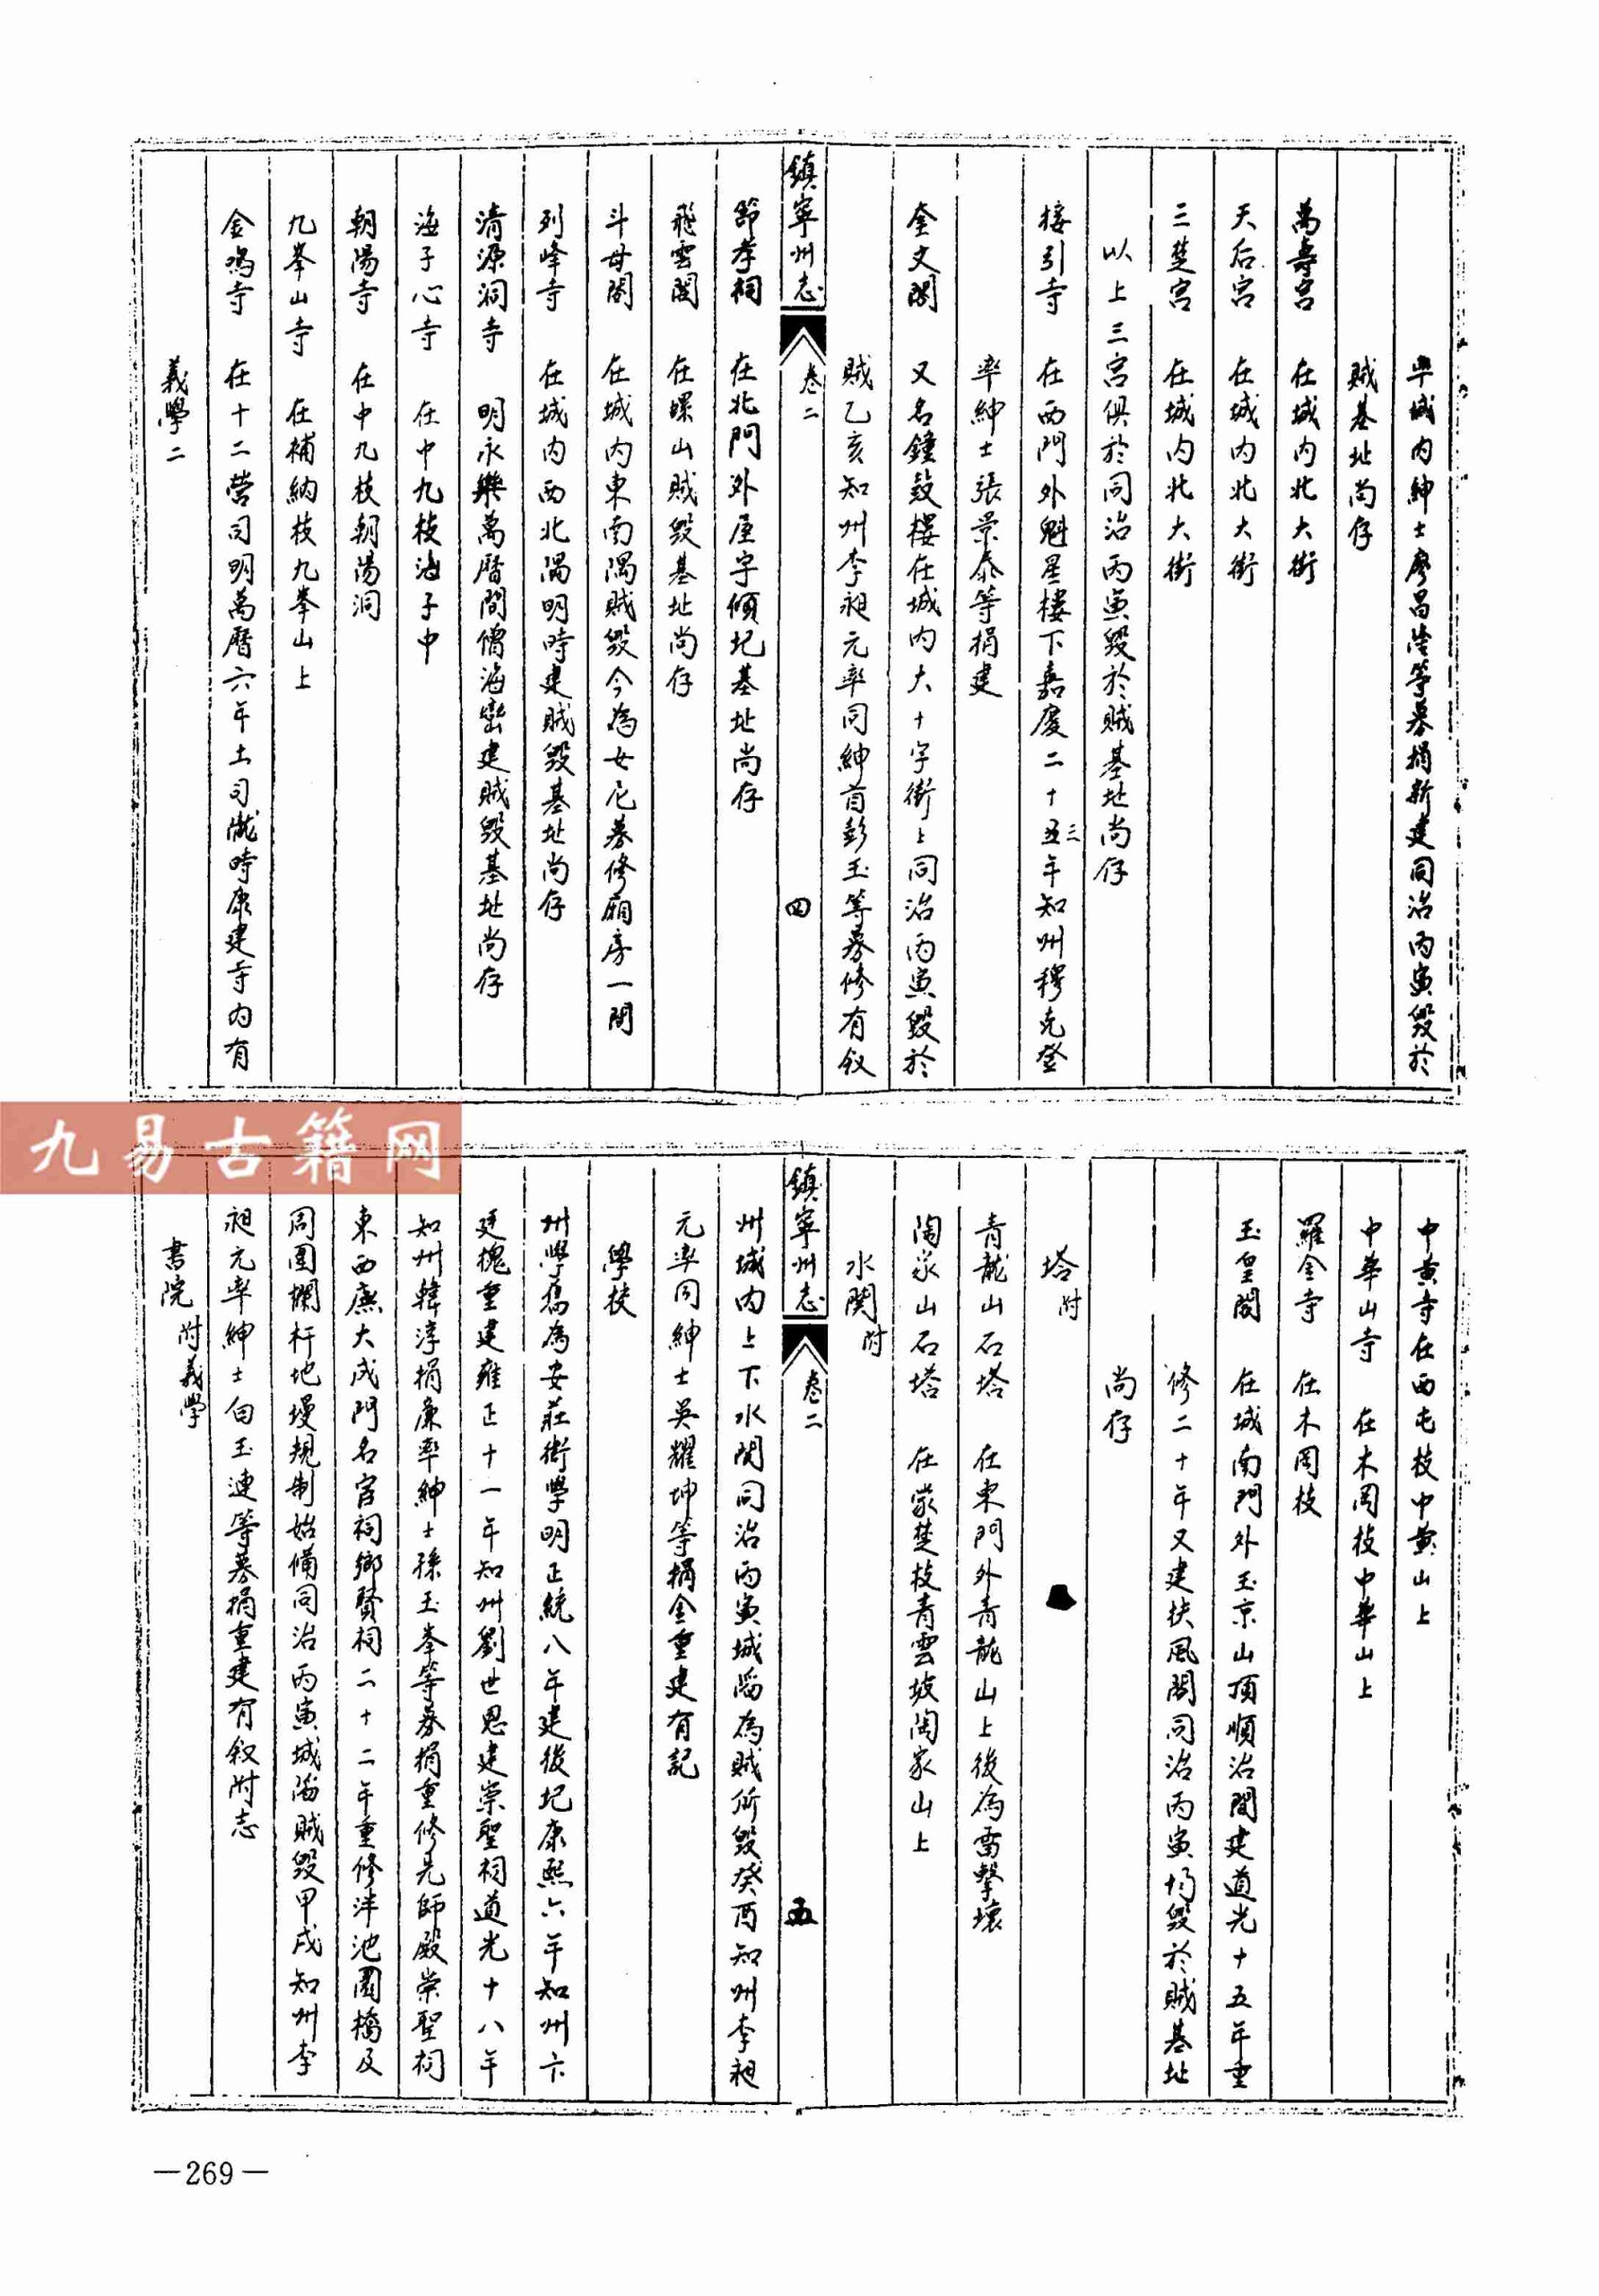 率城内紳士廖昌等募捐新建同治丙寅毀於
賊基址尚存
萬壽宮　在城内北大街
天后宮　在城内北大街
三楚宮　在城内北大街
以上三宮俱於同治丙寅毀於賊基址尚存
接引寺　在西門外魁星樓下嘉慶二十五三年知州穆克登
率紳士張景泰等捐建
奎文閣　又名鐘鼓樓在城内大十字街上同治丙寅毀於
賊乙亥知州李昶元率同紳首彭玉等募修有叙
鎮寧州志　卷二　四
節孝祠　在北門外屋宇傾圮基址尚存
飛雲閣　在螺山賊毀基址尚存
斗母閣　在城内東南隅賊毀今為女尼募修廂房一間
列峰寺　在城内西北隅明時建賊毀基址尚存
清源洞寺　明永樂萬曆間僧海巒建賊毀基址尚存
海子心寺　在中九枝海子中
朝陽寺　在中九枝朝陽洞
九峯山寺　在補納枝九峯山上
金鳴寺　在十二營司明萬曆六年土司隴時康建寺内有
義學二
中黃寺在西屯枝中黃山上
中華山寺　在木岡枝中華山上
羅金寺　在木岡枝
玉皇閣　在城南門外玉京山頂順治間建道光十五年重
修二十年又建扶風閣同治丙寅均毀於賊基址
尚存
塔附
青龍山石塔　在東門外青龍山上後為雷擊壞
陶家山石塔　在蒙楚枝青雲坡陶家山上
水関附
鎮寧州志　卷二　五
州城内上下水関同治丙寅城陷為賊所毀癸酉知州李昶
元率同紳士吳耀坤等捐金重建有記
學校
州學舊為安莊衛學明正統八年建後圮康熙六年知州卞
廷槐重建雍正十一年知州劉世恩建崇聖祠道光十八年
知州韓淳捐廉率紳士孫玉峯等募捐重修先師殿崇聖祠
東西廡大成門名宦祠鄉賢祠二十二年重修泮池圜橋及
周圍欄杆地墁規制始備同治丙寅城陷賊毀甲戌知州李
昶元率紳士向玉連等募捐重建有叙附志
書院附義學
九易古籍网
—269—